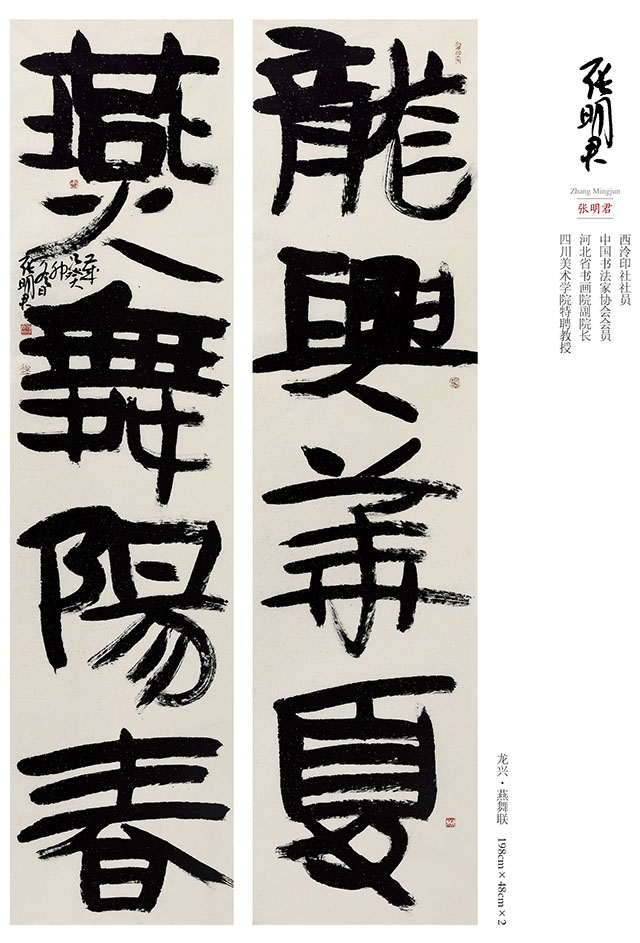 張明君
Zhang Mingjun
张明君
西泠印社社员
中国书法家协会会员
河北省书画院副院长
四川美术学院特聘教授
龍興華夏
燕舞陽春
張明君
龙兴·燕舞联 198cm×48cm×2